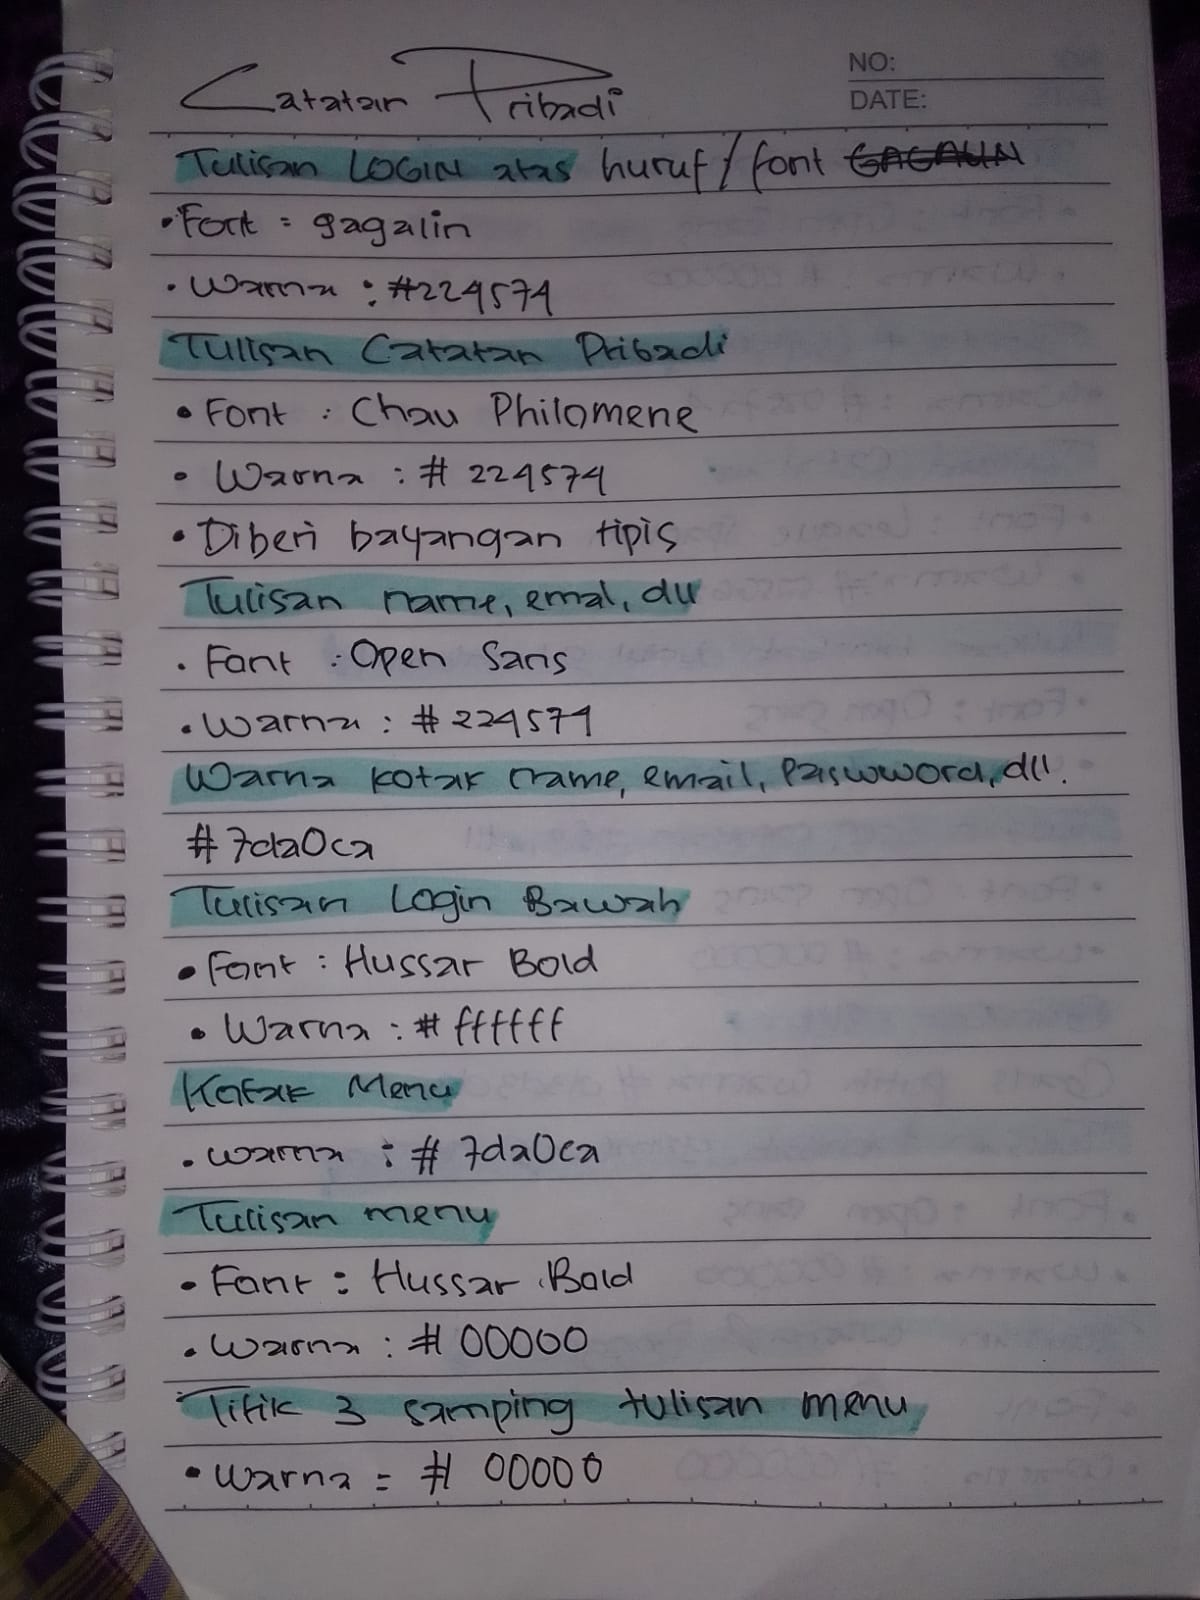 Catatan Pribadi
NO:
DATE:
Tulisan LOGIN atas huruf/font GAGALIN
• Font = gagalin
• Warna : #224574
Tulisan Catatan Pribadi
• Font : Chau Philomene
• Warna : # 224574
• Diberi bayangan tipis
Tulisan name, emal, dll
• Font : Open Sans
• Warna : # 224574
Warna kotak name, email, Passwword, dll.
# 7da0ca
Tulisan Login Bawah
• Font : Hussar Bold
• Warna : # ffffff
Kotak Menu
• Warna : # 7da0ca
Tulisan menu
• Font : Hussar Bold
• Warna : # 00000
Titik 3 samping tulisan menu
• Warna = # 00000